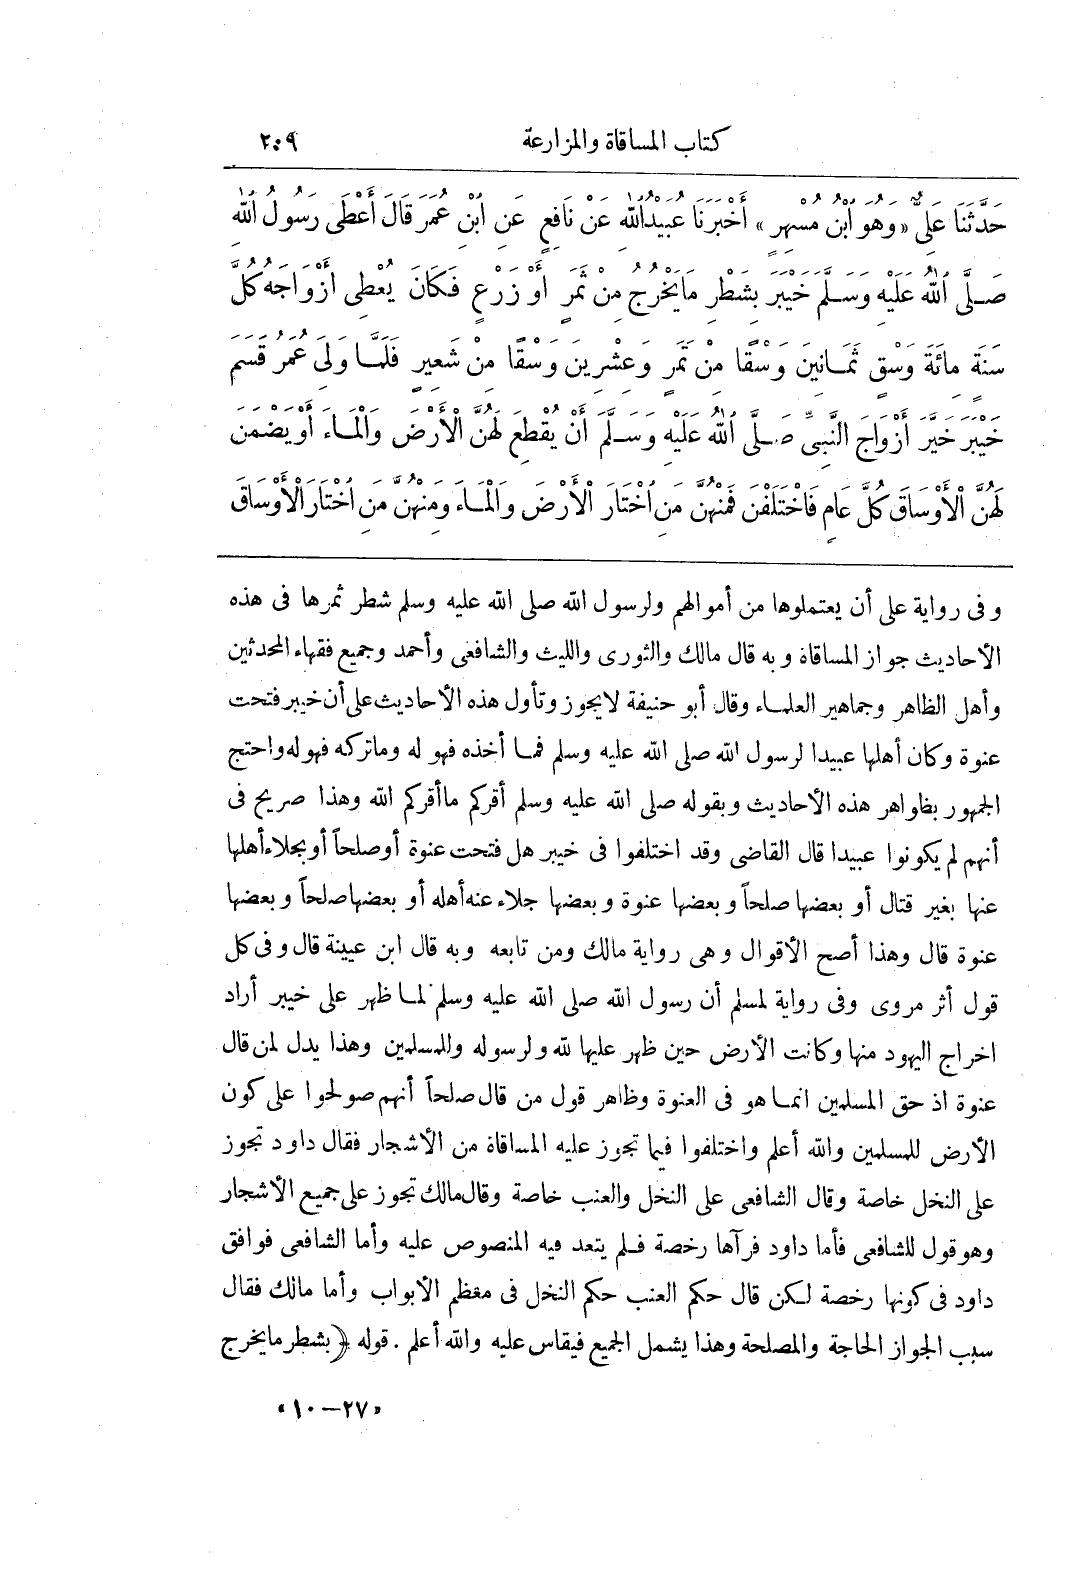 كتاب المساقاة والمزارعة ٢٠٩
حَدَّثَنَا عَلِيٌّ «وَهُوَ ابْنُ مُسْهِرٍ» أَخْبَرَنَا عُبَيْدُ اللهِ عَنْ نَافِعٍ عَنِ ابْنِ عُمَرَ قَالَ أَعْطَى رَسُولُ اللهِ
صَلَّى اللهُ عَلَيْهِ وَسَلَّمَ خَيْبَرَ بِشَطْرِ مَا يَخْرُجُ مِنْ ثَمَرٍ أَوْ زَرْعٍ فَكَانَ يُعْطِى أَزْوَاجَهُ كُلَّ
سَنَةٍ مِائَةَ وَسْقٍ ثَمَانِينَ وَسْقًا مِنْ تَمْرٍ وَعِشْرِينَ وَسْقًا مِنْ شَعِيرٍ فَلَمَّا وَلِىَ عُمَرُ قَسَمَ
خَيْبَرَ خَيَّرَ أَزْوَاجَ النَّبِىِّ صَلَّى اللهُ عَلَيْهِ وَسَلَّمَ أَنْ يُقْطِعَ لَهُنَّ الْأَرْضَ وَالْمَاءَ أَوْ يَضْمَنَ
لَهُنَّ الْأَوْسَاقَ كُلَّ عَامٍ فَاخْتَلَفْنَ فَمِنْهُنَّ مَنِ اخْتَارَ الْأَرْضَ وَالْمَاءَ وَمِنْهُنَّ مَنِ اخْتَارَ الْأَوْسَاقَ
وفى رواية على أن يعتملوها من أموالهم ولرسول الله صلى الله عليه وسلم شطر ثمرها فى هذه
الأحاديث جواز المساقاة وبه قال مالك والثورى والليث والشافعى وأحمد وجميع فقهاء المحدثين
وأهل الظاهر وجماهير العلماء وقال أبو حنيفة لايجوز وتأول هذه الأحاديث على أن خيبر فتحت
عنوة وكان أهلها عبيدا لرسول الله صلى الله عليه وسلم فما أخذه فهو له وماتركه فهو له واحتج
الجمهور بظواهر هذه الأحاديث وبقوله صلى الله عليه وسلم أقركم ماأقركم الله وهذا صريح فى
أنهم لم يكونوا عبيدا قال القاضى وقد اختلفوا فى خيبر هل فتحت عنوة أوصلحاً أو بجلاء أهلها
عنها بغير قتال أو بعضها صلحاً وبعضها عنوة وبعضها جلاء عنه أهله أو بعضها صلحاً وبعضها
عنوة قال وهذا أصح الأقوال وهى رواية مالك ومن تابعه وبه قال ابن عيينة قال وفى كل
قول أثر مروى وفى رواية لمسلم أن رسول الله صلى الله عليه وسلم لما ظهر على خيبر أراد
اخراج اليهود منها وكانت الأرض حين ظهر عليها لله ولرسوله وللمسلمين وهذا يدل لمن قال
عنوة اذ حق المسلمين انما هو فى العنوة وظاهر قول من قال صلحاً أنهم صولحوا على كون
الأرض للمسلمين والله أعلم واختلفوا فيما تجوز عليه المساقاة من الأشجار فقال داود تجوز
على النخل خاصة وقال الشافعى على النخل والعنب خاصة وقال مالك تجوز على جميع الأشجار
وهو قول للشافعى فأما داود فرآها رخصة فلم يتعد فيه المنصوص عليه وأما الشافعى فوافق
داود فى كونها رخصة لكن قال حكم العنب حكم النخل فى معظم الأبواب وأما مالك فقال
سبب الجواز الحاجة والمصلحة وهذا يشمل الجميع فيقاس عليه والله أعلم . قوله ﴿بشطر مايخرج
«٢٧ – ١٠»